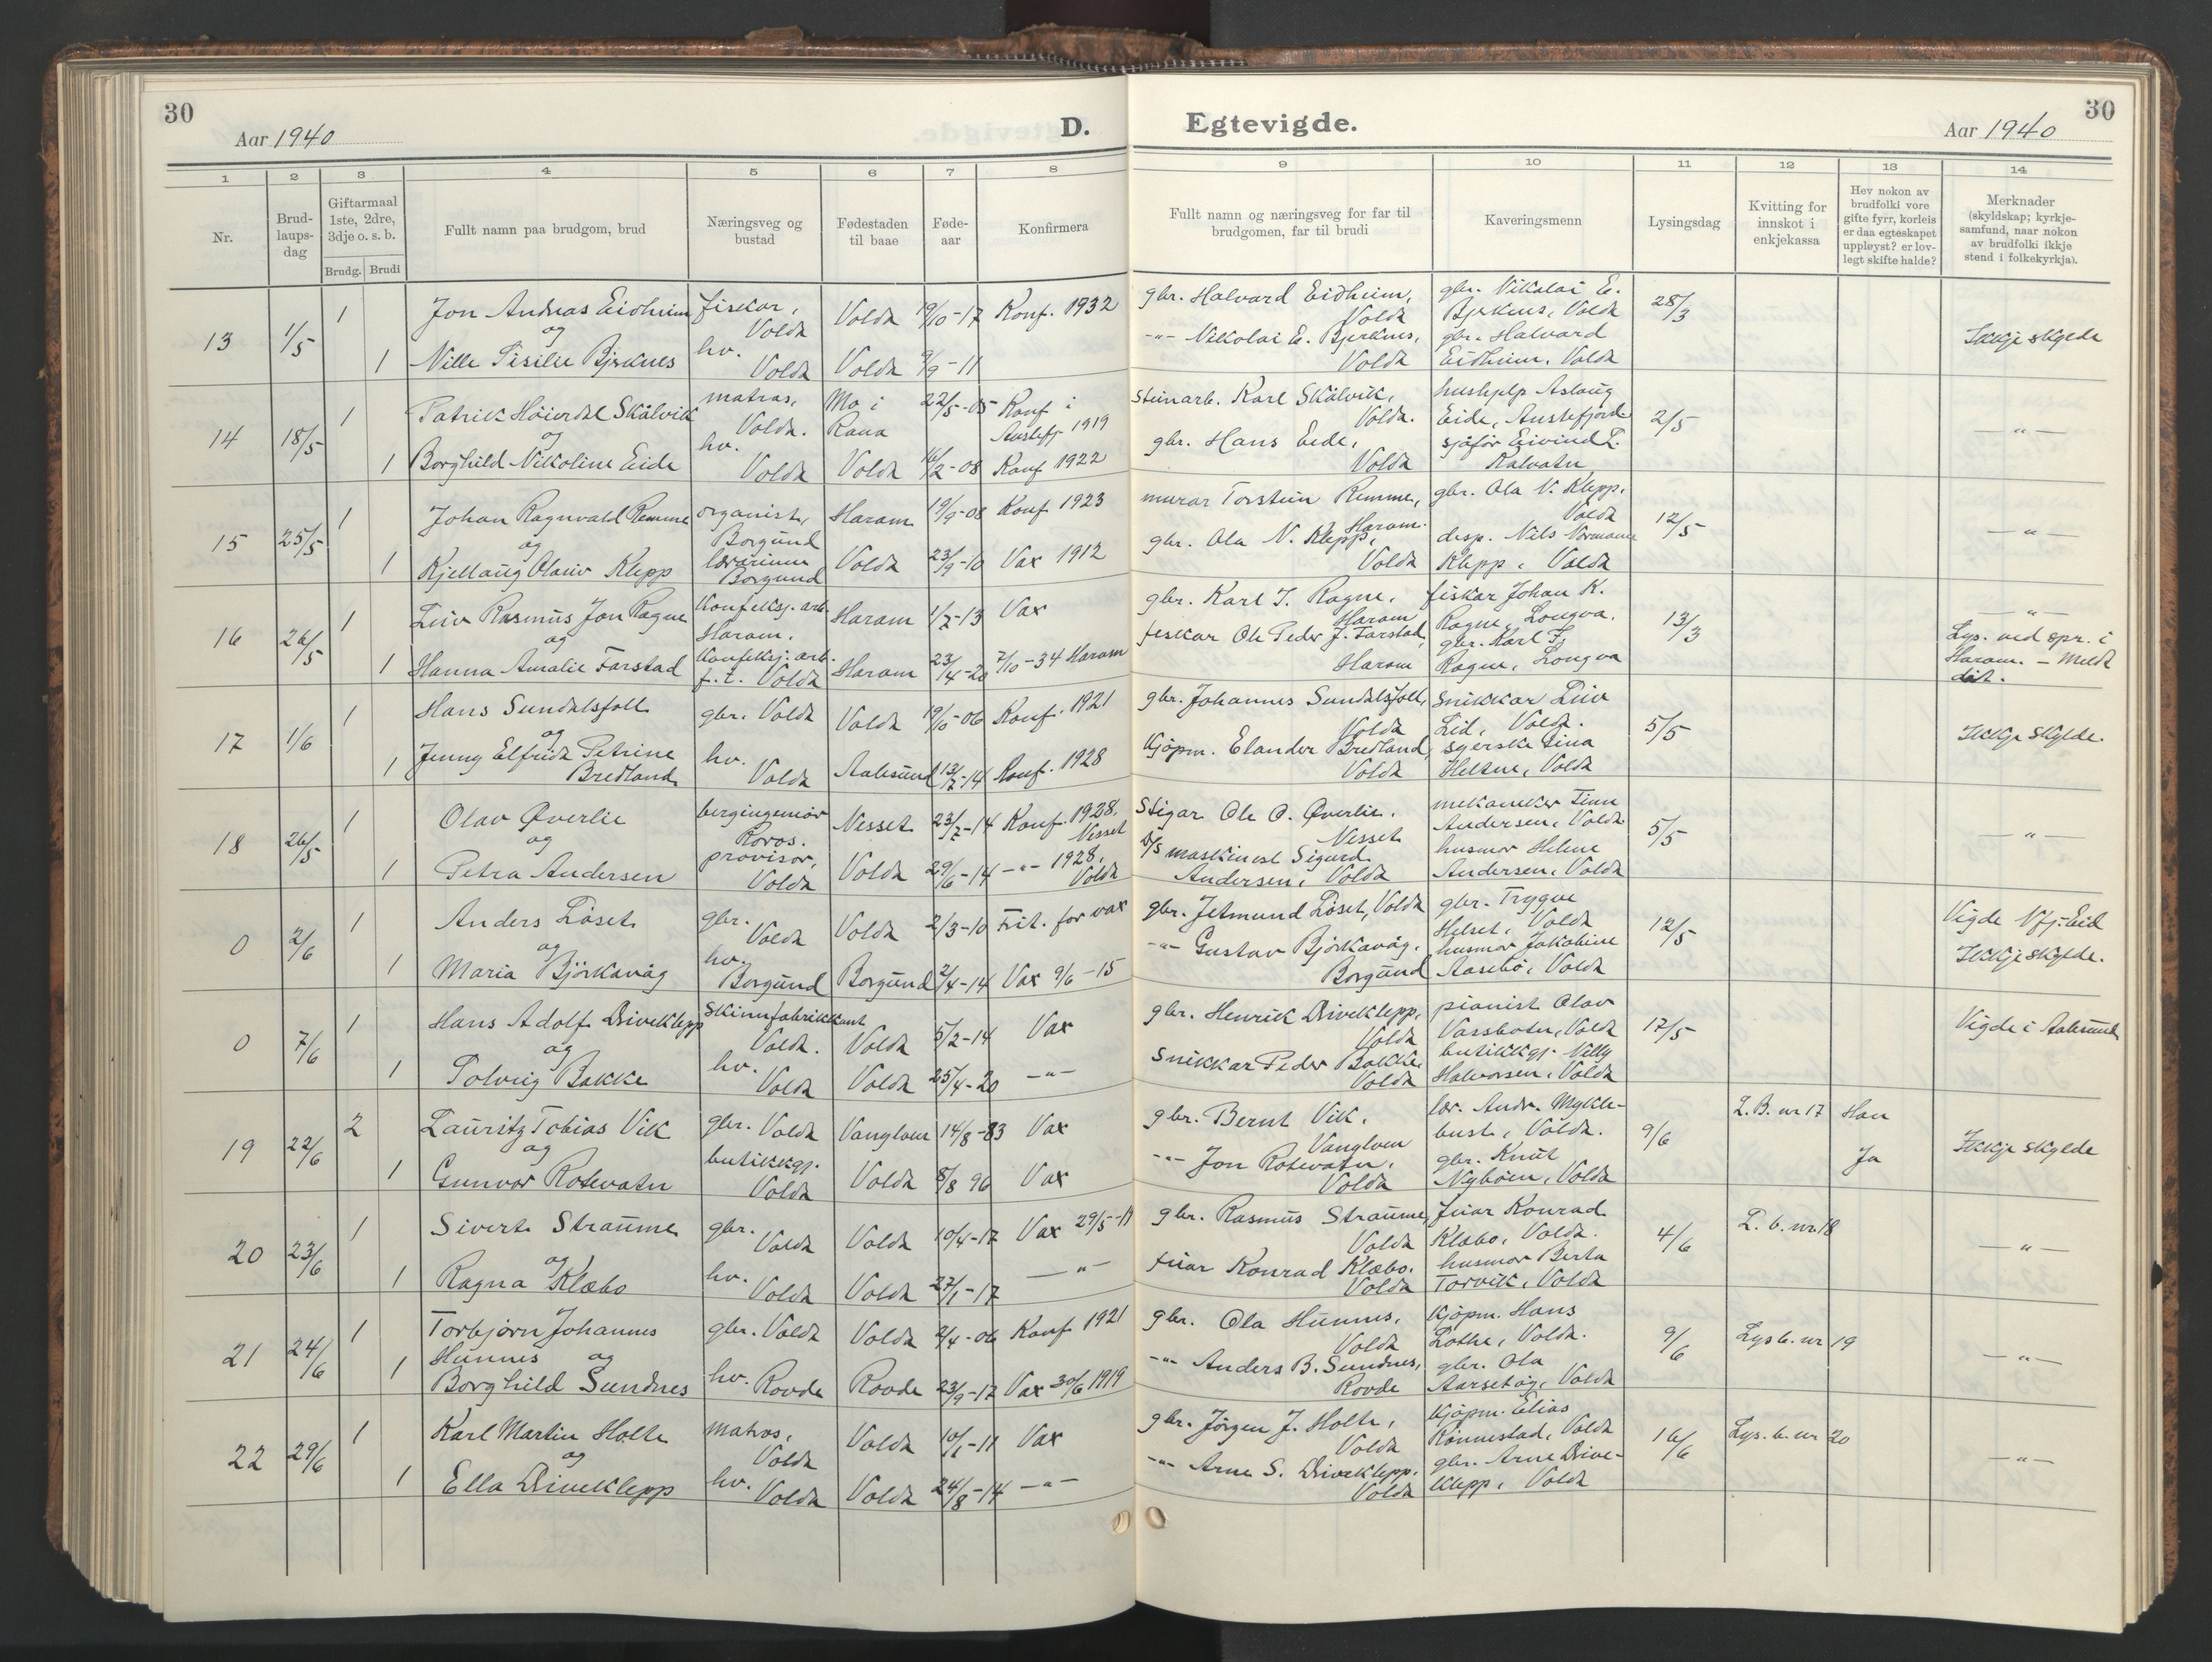 30
Aar 1940
D.
Egtevigde.
Aar 1940
30
1
2
3
4
5
6
7
8
9
10
11
12
13
14
Nr.
Brud-
laups-
dag
Giftarmaal
1ste, 2dre,
3dje o. s. b.
Brudg.
Brudi
Fullt namn paa brudgom, brud
Næringsveg og
bustad
Fødestaden
til baae
Føde-
aar
Konfirmera
Fullt namn og næringsveg for far til
brudgomen, far til brudi
Kaveringsmenn
Lysingsdag
Kvitting for
innskot i
enkjekassa
Hev nokon av
brudfolki vore
gifte fyrr, korleis
er daa egteskapet
uppløyst? er lov-
legt skifte halde?
Merknader
(skyldskap; kyrkje-
samfund, naar nokon
av brudfolki ikkje
stend i folkekyrkja).
13 1/5 1 Jon Andreas Eidheim fiskar, Volda Volda 19/10-17 Konf. 1932
og
1 Nille Sisilie Bjerknes hv. Volda Volda 9/9-11
gbr. Halvard Eidheim, Volda
-"- Nikolai E. Bjerknes, Volda
gbr. Nikolai E.
Bjerknes, Volda
gbr. Halvard
Eidheim, Volda
28/3
Ikkje skylde
14 18/5 1 Patrick Höierdal Skålvik matros, Volda. Mo i Rana 22/5-05 Konf i Austefj 1919
og
1 Borghild Nikoline Eide hv. Volda Volda 16/2-08 Konf 1922
Steinarb. Karl Skålvik, Volda.
gbr. Hans Eide, Volda
hushjelp Aslaug
Eide, Austefjord
sjåför Eivind L.
Kalvatn
2/5
-"-
15 25/5 1 Johan Ragnvald Remme organist, Borgund Haram 19/9-08 Konf 1923
og
1 Kjellaug Olauv Klepp lærarinne Borgund Volda 23/9-10 Vax 1912
murar Torstein Remme, Haram.
gbr. Ola N. Klepp, Volda
gbr. Ola N. Klepp,
Volda
disp. Nils Normann
Klepp, Volda
12/5
-"-
16 26/5 1 Leiv Rasmus Jon Rogne Konfeksj. arb. Haram. Haram 1/2-13 Vax
og
1 Hanna Amalie Farstad Konfeksj. arb. f. t. Volda Haram 23/4-20 7/10-34 Haram
gbr. Karl J. Rogne, Haram
fiskar Ole Peder J. Farstad, Haram
fiskar Johan K.
Rogne, Longva.
gbr. Karl J.
Rogne, Longva
13/3
-"-
Lys. ved spr. i
Haram. - Meldt
dit.
17 1/6 1 Hans Sundalsfoll gbr. Volda Volda 19/10-06 Konf. 1921
og
1 Jenny Elfrida Petrine
Bredland hv. Volda Aalesund 13/2-14 Konf. 1928
gbr. Johannes Sundalsfoll, Volda
Kjöpm. Elander Bredland, Volda
Snikkar Leiv
Lid, Volda.
syerske Lina
Helsne, Volda
5/5
Ikkje skylde.
18 26/5 1 Olav Øverlie bergingeniör Roros. Nesset 23/2-14 Konf. 1928. Nesset
og
1 Petra Andersen provisor, Volda Volda 29/6-14 -"- 1928, Volda
Stigar Ole O. Øverlie. Nesset
D/S maskinist Sigurd
Andersen, Volda
mekaniker Finn
Andersen, Volda
husmor Helene
Andersen, Volda
5/5
-"-
0 2/6 1 Anders Löset gbr. Volda Volda 2/3-10 Frit. for vax
og
1 Maria Björkavåg hv. Borgund Borgund 2/4-14 Vax 9/6-15
gbr. Jetmund Löset, Volda
-"- Gustav Björkavåg. Borgund
gbr. Trygve
Helset, Volda
husmor Jakobine
Aasebö, Volda
12/5
Vigde Nfj. Eid
Ikkje skylde.
0 7/6 1 Hans Adolf Driveklepp skinnfabrikkant Volda. Volda 5/2-14 Vax
og
1 Solveig Bakke hv. Volda Volda 25/4-20 -"-
gbr. Henrik Driveklepp, Volda
Snikkar Peder Bakke, Volda
pianist Olav
Vassbotn, Volda
butikkgj. Nelly
Halvorsen, Volda
17/5
Vigde i Aalesund
19 22/6 2 Lauritz Tobias Vik gbr. Volda Vanylven 14/8-83 Vax
og
1 Gunvor Rotevatn butikkgj. Volda Volda 8/8 96 Vax
gbr. Bernt Vik, Vanylven
-"- Jon Rotevatn, Volda
lær. Andr. Mykle-
bust, Volda.
gbr. Knut
Nyböen, Volda
9/6
L. B. nr 17
Han
Ja
Ikkje skylde
20 23/6 1 Sivert Straume gbr. Volda Volda 10/4-17 Vax 29/5-19
og
1 Ragna Klæbo hv. Volda Volda 27/1-17 -"-
gbr. Rasmus Straume, Volda
fuar Konrad Klæbo. Volda
fuar Konrad
Klæbo, Volda.
husmor Berta
Torvik, Volda
4/6
L. b. nr. 18
-"-
21 24/6 1 Torbjørn Johannes gbr. Volda Volda 2/4-06 Konf 1921
Hunnes og
1 Borghild Sundnes hv. Rovde Rovde 23/9-17 Vax 30/6 1919
gbr. Ola Hunnes, Volda
-"- Anders B. Sundnes, Rovde
Kjöpm. Hans
Lothe, Volda.
gbr. Ola
Aarsethöy, Volda
9/6
Lys b. nr 19
-"-
22 29/6 1 Karl Martin Holte matros, Volda Volda 10/1-11 Vax
og
1 Ella Driveklepp hv. Volda Volda 24/8-14 -"-
gbr. Jörgen J. Holte, Volda
-"- Arne S. Driveklepp. Volda
Kjöpm. Elias
Rönnestad, Volda
gbr. Arne Drive-
klepp, Volda
16/6
Lys. b. nr 20
-"-